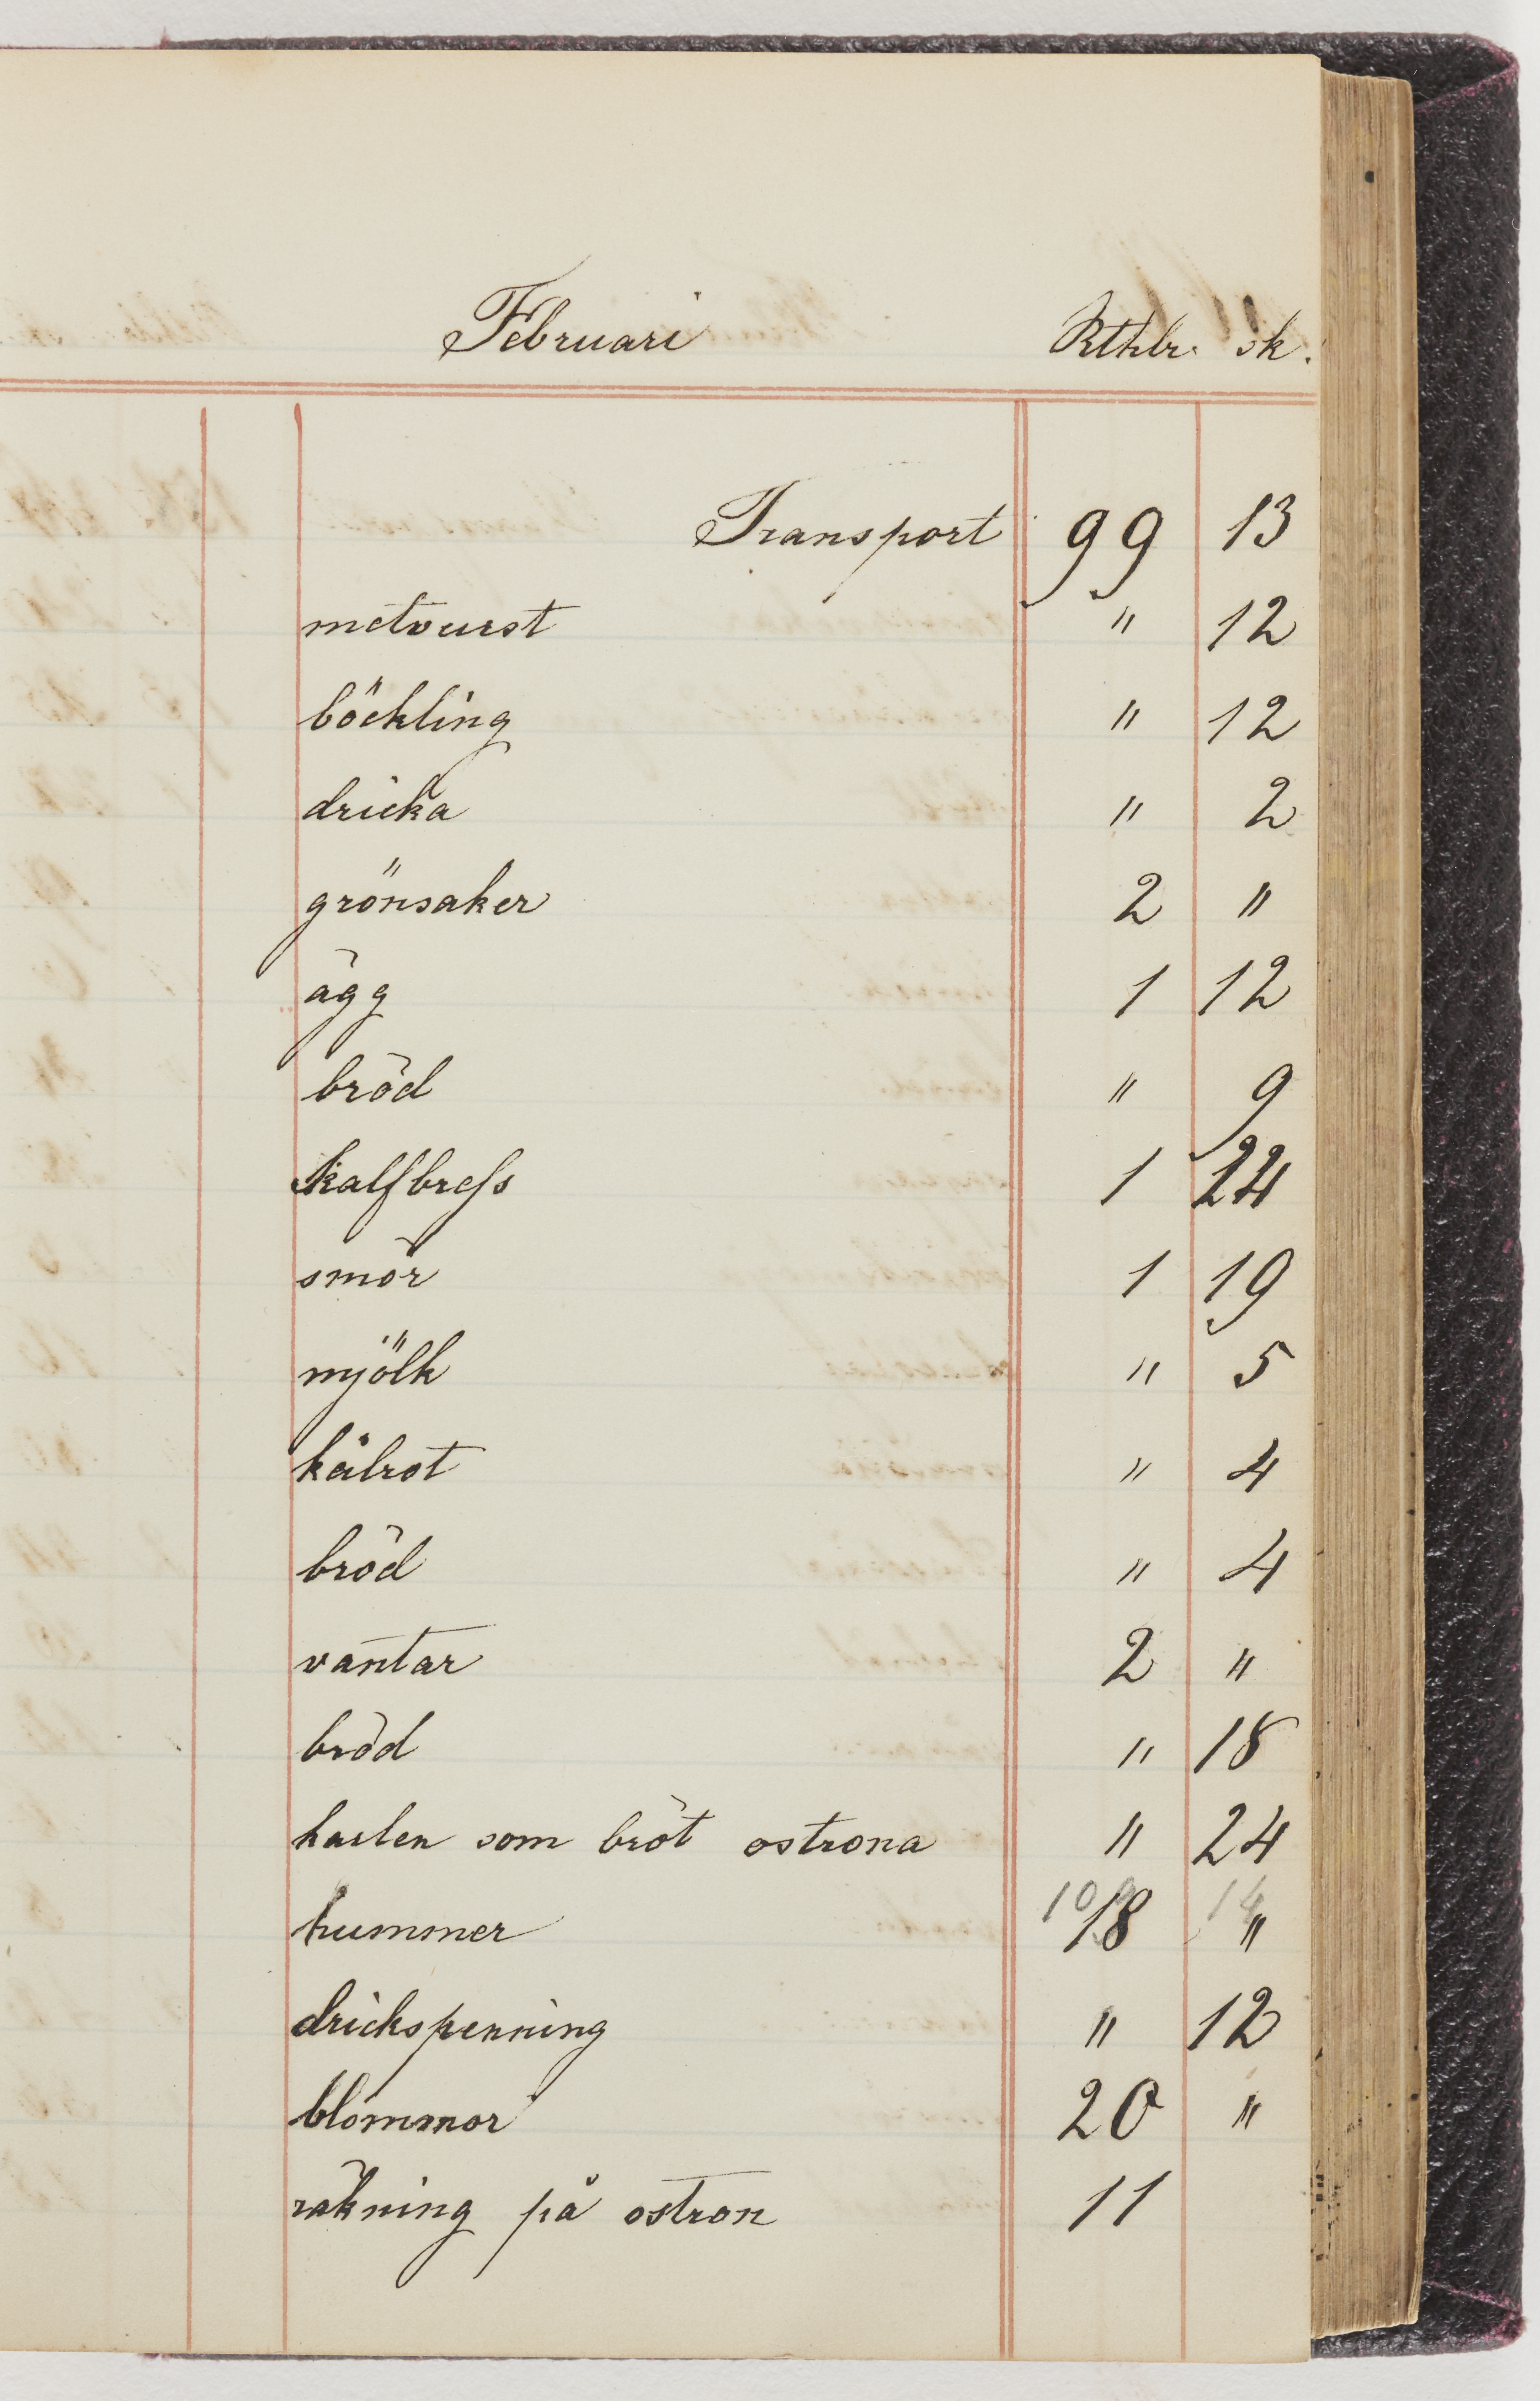 Februari Rthlr. sk.
Transport 99 13
metvurst " 12
böckling " 12
dricka " 2
grönsaker 2 "
ägg 1 12
bröd " 9
kalfbress 1 24
smör 1 19
mjölk " 5
kålrot " 4
bröd " 4
vantar 2 "
bröd " 18
karlen som bröt ostrona " 24
hummer 18 "
drickspenning " 12
blommor 20 "
räkning på ostron 11